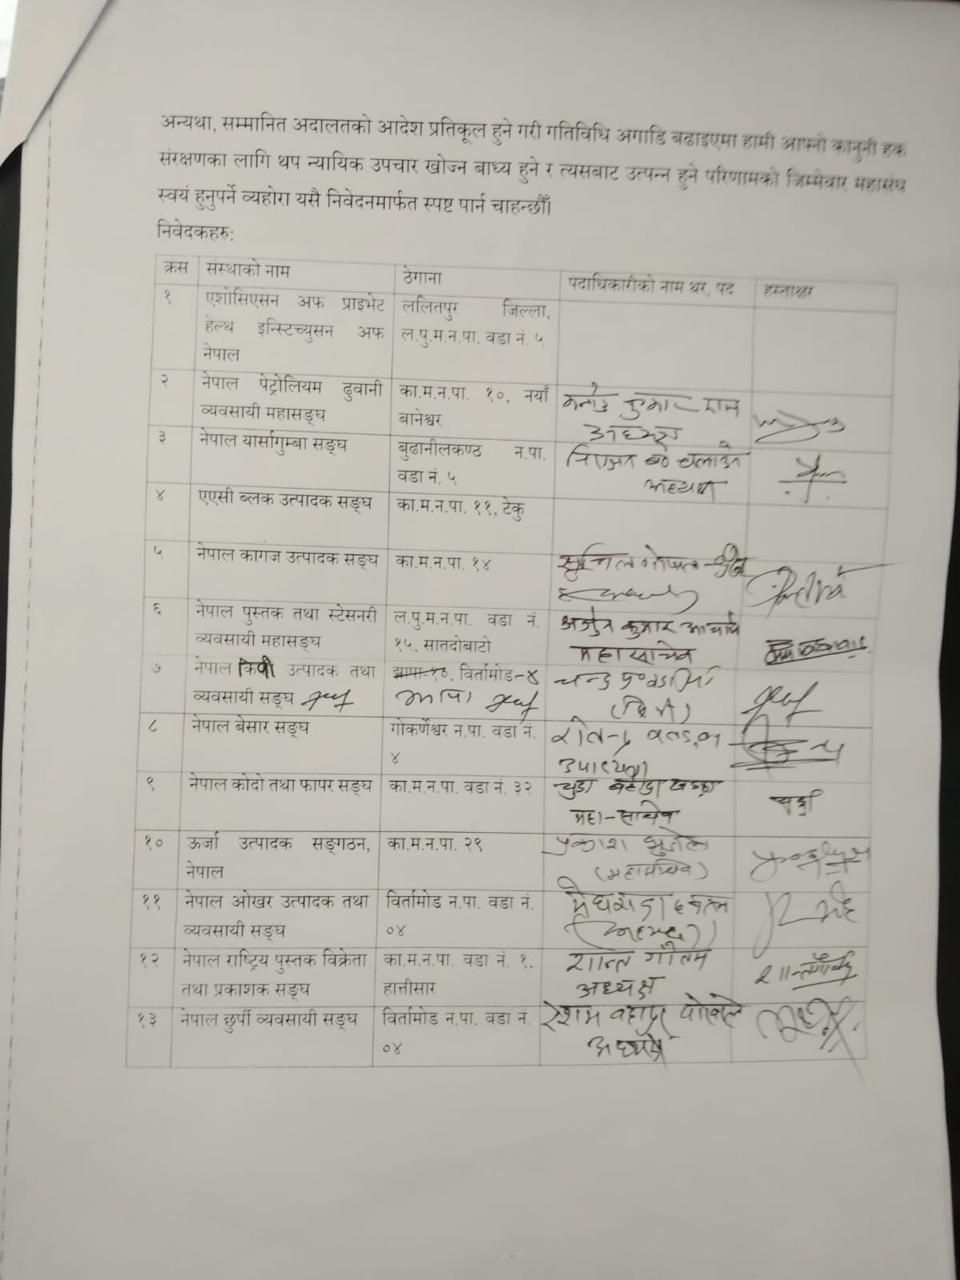 अन्यथा, सम्मानित अदालतको आदेश प्रतिकूल हुने गरी गतिविधि अगाडि बढाइएमा हामी आफ्नो कानुनी हक
संरक्षणका लागि थप न्यायिक उपचार खोज्न बाध्य हुने र त्यसबाट उत्पन्न हुने परिणामको जिम्मेवार महासंघ
स्वयं हुनुपर्ने व्यहोरा यसै निवेदनमार्फत स्पष्ट पार्न चाहन्छौँ।
निवेदकहरु:
क्रस संस्थाको नाम ठेगाना पदाधिकारीको नाम थर, पद हस्ताक्षर
१ एशोसिएसन अफ प्राइभेट ललितपुर जिल्ला,
हेल्थ इन्स्टिच्युसन अफ ल.पु.म.न.पा. वडा नं. ५
नेपाल
२ नेपाल पेट्रोलियम ढुवानी का.म.न.पा. १०, नयाँ
व्यवसायी महासङ्घ बानेश्वर अध्यक्ष
३ नेपाल यार्सागुम्बा सङ्घ बुढानीलकण्ठ न.पा.
वडा नं. ५ अध्यक्ष
४ एएसी ब्लक उत्पादक सङ्घ का.म.न.पा. ११, टेकु
५ नेपाल कागज उत्पादक सङ्घ का.म.न.पा. १४
६ नेपाल पुस्तक तथा स्टेसनरी ल.पु.म.न.पा. वडा नं. अर्जुन कुमार आचार्य
व्यवसायी महासङ्घ १५, सातदोबाटो महासचिव
७ नेपाल किवी उत्पादक तथा झापा-१०, विर्तामोड-४
व्यवसायी सङ्घ झापा
८ नेपाल बेसार सङ्घ गोकर्णेश्वर न.पा. वडा नं.
४ उपाध्यक्ष
९ नेपाल कोदो तथा फापर सङ्घ का.म.न.पा. वडा नं. ३२
महा-सचिव
१० ऊर्जा उत्पादक सङ्गठन, का.म.न.पा. २९ प्रकाश
नेपाल (महासचिव)
११ नेपाल ओखर उत्पादक तथा विर्तामोड न.पा. वडा नं.
व्यवसायी सङ्घ ०४
१२ नेपाल राष्ट्रिय पुस्तक विक्रेता का.म.न.पा. वडा नं. १, शान्त गौतम
तथा प्रकाशक सङ्घ हात्तीसार अध्यक्ष
१३ नेपाल छुर्पी व्यवसायी सङ्घ विर्तामोड न.पा. वडा नं. रेशम बहादुर पोखरेल
०४ अध्यक्ष